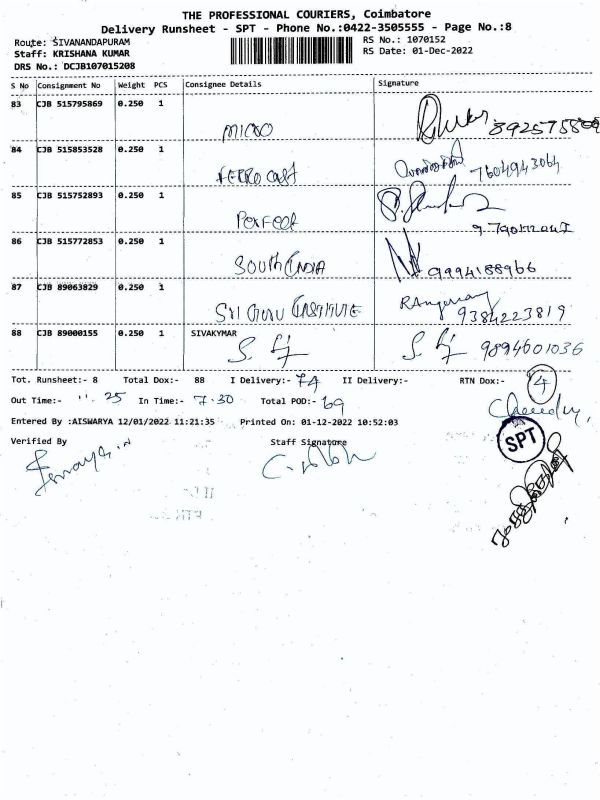 THE PROFESSIONAL COURIERS, Coimbatore
Delivery Runsheet - SPT - Phone No.:0422-3505555 - Page No.:8
Route: SIVANANDAPURAM
RS No.: 1070152
Staff: KRISHANA KUMAR
RS Date: 01-Dec-2022
DRS No.: DCJB107015208
S No Consignment No Weight PCS Consignee Details Signature
83 CJB 515795869 0.250 1 MICRO
84 CJB 515853528 0.250 1 FERRO CAST 7604943064
85 CJB 515752893 0.250 1 PERFECT
86 CJB 515772853 0.250 1 SOUTH INDIA 9994188966
87 CJB 89063829 0.250 1 SRI GURU INSTITUTE 9384223819
88 CJB 89000155 0.250 1 SIVAKYMAR 9894601036
Tot. Runsheet:- 8 Total Dox:- 88 I Delivery:- 74 II Delivery:- RTN Dox:- 4
Out Time:- 11.25 In Time:- 7.30 Total POD:- 69
Entered By :AISWARYA 12/01/2022 11:21:35 Printed On: 01-12-2022 10:52:03
Verified By Staff Signature
SPT